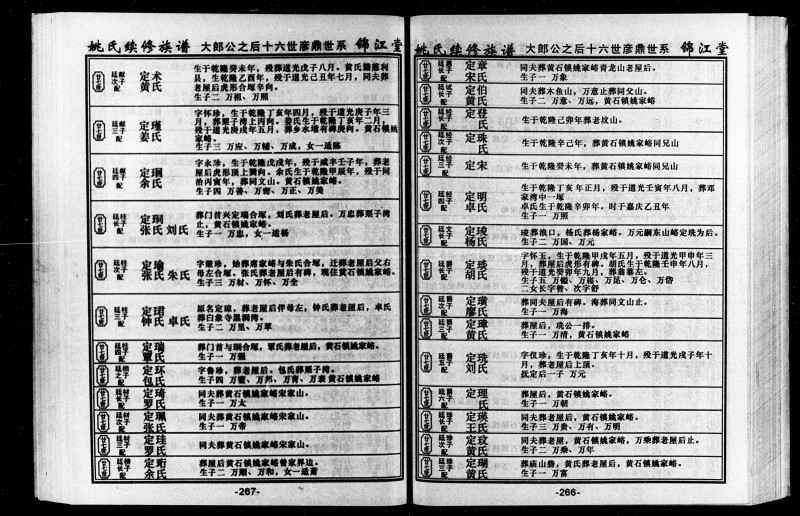 姚氏续修族谱 大郎公之后十六世彦鼎世系 锦江堂
廷献次子 配
定术
黄氏
生于乾隆癸未年，殁葬道光戊子八月。黄氏籍慈利
县，生乾隆乙酉年，殁于道光己丑年七月，同夫葬
老屋后虎形合塚辛向。
生子二 万祖、万照
廷献三子 配
定瑾
姜氏
字怀珍，生于乾隆丁亥年四月，殁于道光庚子年三
月，葬栗子湾上丙向。姜氏生于乾隆丁亥年二月，
殁于道光庚戌年五月，葬乡水堰有碑庚向。黄石镇姚
家峪。
生子三 万应、万辅、万成，女一适陈
廷献四子 配
定琱
余氏
字永珍，生于乾隆戊戌年，殁于咸丰壬子年，葬老
屋后虎形上巽向。余氏生于乾隆甲辰年，殁于同
治丙寅年，葬同文山。黄石镇姚家峪。
生子四 万善、万寄、万正、万美
廷桂长子 配
定珂
张氏 刘氏
葬门首兴定瑞合塚，刘氏葬老屋后。万忠葬栗子湾
止，黄石镇姚家峪。
生子一 万忠，女一适杨
廷桂次子 配
定瑜
张氏 朱氏
字继珍，始葬廖家峪与朱氏合塚，迁葬老屋后父右
母左合塚。张氏葬老屋后有碑，现住黄石镇姚家峪。
生子三 万材、万怀、万全
廷桂三子 配
定珺
钟氏 卓氏
原名定琼，葬老屋后伴母左，钟氏葬老屋后，卓氏
葬白象寺黑洞湾。
生子二 万里、万草
廷桂四子 配
定瑞
覃氏
葬门首与琱合塚，覃氏葬老屋后，黄石镇姚家峪。
生子一 万强
定环
包氏
字鲁珍，葬老屋后。包氏葬栗子湾。
廷材长子 配
定琦
罗氏
同夫葬黄石镇姚家峪宋家山。
生子一 万太
廷材次子 配
定珮
张氏
同夫葬黄石镇姚家峪宋家山。
生子一 万帝
廷材三子 配
定珪
罗氏
同夫葬黄石镇姚家峪宋家山。
定珩
余氏
葬屋后黄石镇姚家峪曾家界边。
生子二 万顺、万和，女一适萧
-267-
姚氏续修族谱 大郎公之后十六世彦鼎世系 锦江堂
定章
宋氏
同夫葬黄石镇姚家峪青龙山老屋后。
生子一 万象
廷试长子 配
定伯
黄氏
同夫葬木鱼山，万意止葬同父山。
生子二 万意、万远，黄石镇姚家峪
定登
氏
生于乾隆己卯年葬老坟山。
定珠
氏
生于乾隆辛己年，葬黄石镇姚家峪同兄山
定宋
生于乾隆癸未年，葬黄石镇姚家峪同兄山
定明
卓氏
生于乾隆丁亥年正月，殁于道光壬寅年八月，葬邓
家湾中一塚
卓氏生于乾隆辛卯年。时于嘉庆乙丑年
生子一 万照
廷文长子 配
定埈
杨氏
埈葬浪口，杨氏葬杨家峪。万元嗣东山峪定珗为后。
生子二 万国、万元
廷爵长子 配
定珍
胡氏
字怀玉，生于乾隆甲戌年五月，殁于道光甲申年三
月，葬屋后虎形有碑。胡氏生于乾隆壬申年八月，
殁于道光癸卯年九月，葬翁墓左。
生子五 万俊、万崧、万昆、万仑、万岱
二女长字曾、次字舒
廷爵次子 配
定璜
廖氏
葬同夫屋后有碑。海葬同文山止。
生子一 万海
廷爵三子 配
定璋
黄氏
葬屋后，珗公一排。
生子一 万清，黄石镇姚家峪
廷爵五子 配
定珗
刘氏
字仪珍，生于乾隆丁亥年十月，殁于道光戊子年十
月，葬老屋后上顶。
抚定后一子 万元
廷爵六子 配
定理
氏
葬屋后，黄石镇姚家峪。
生子一 万朝
廷珍长子 配
定瑛
王氏
同夫葬老屋后，黄石镇姚家峪。
生子三 万贵、万有、万明
廷珍次子 配
定玟
黄氏
同夫葬老屋，黄石镇姚家峪，万乘葬老屋后止。
生子二 万乘、万年
廷珍三子 配
定瑚
黄氏
葬庙山磐，黄氏葬老屋后，黄石镇姚家峪。
生子一 万富
-266-